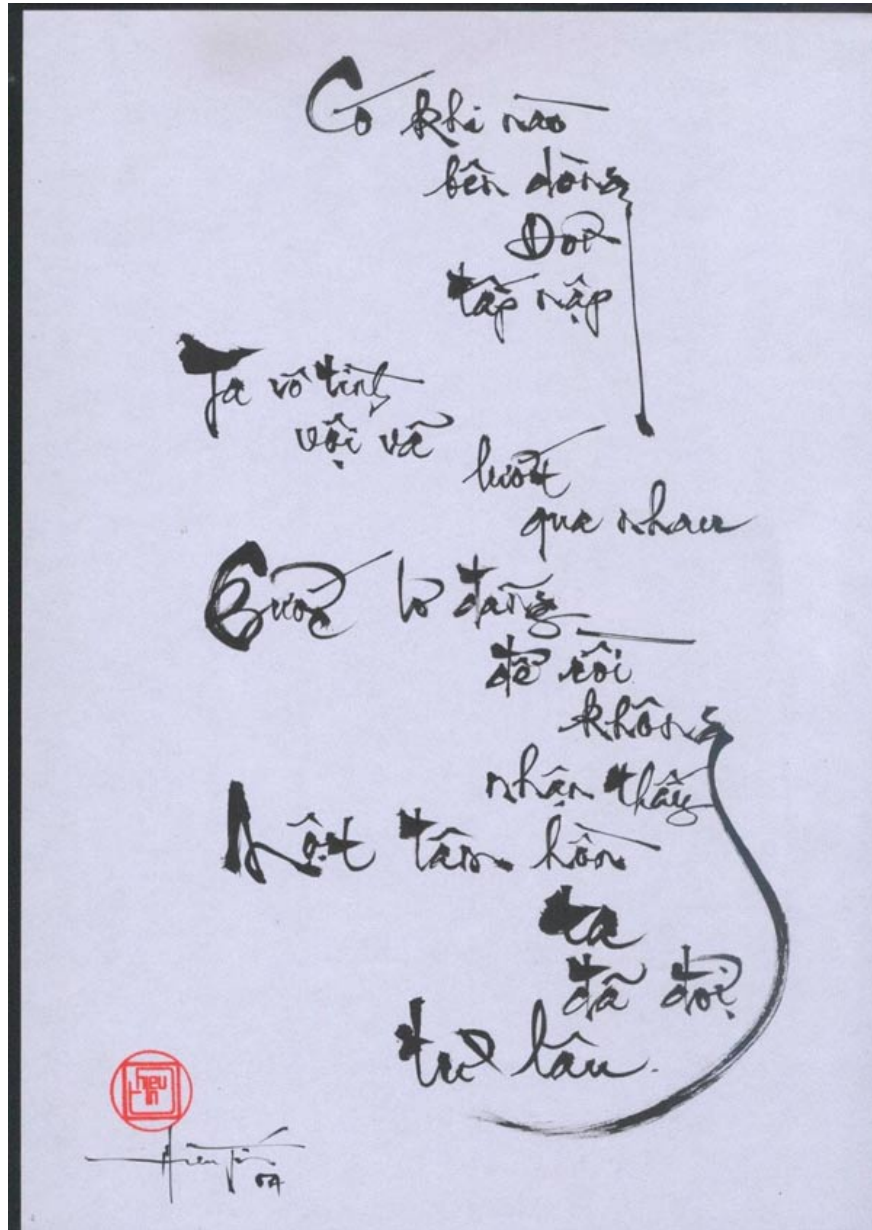 Có khi nào
bên dòng
Đời
tấp nập
Ta vô tình
vội vã
lướt
qua nhau
Bước lơ đãng
để rồi
không
nhận thấy
Một tâm hồn
ta
đã đợi
từ lâu.
hieu
tin
Hiếu Tín